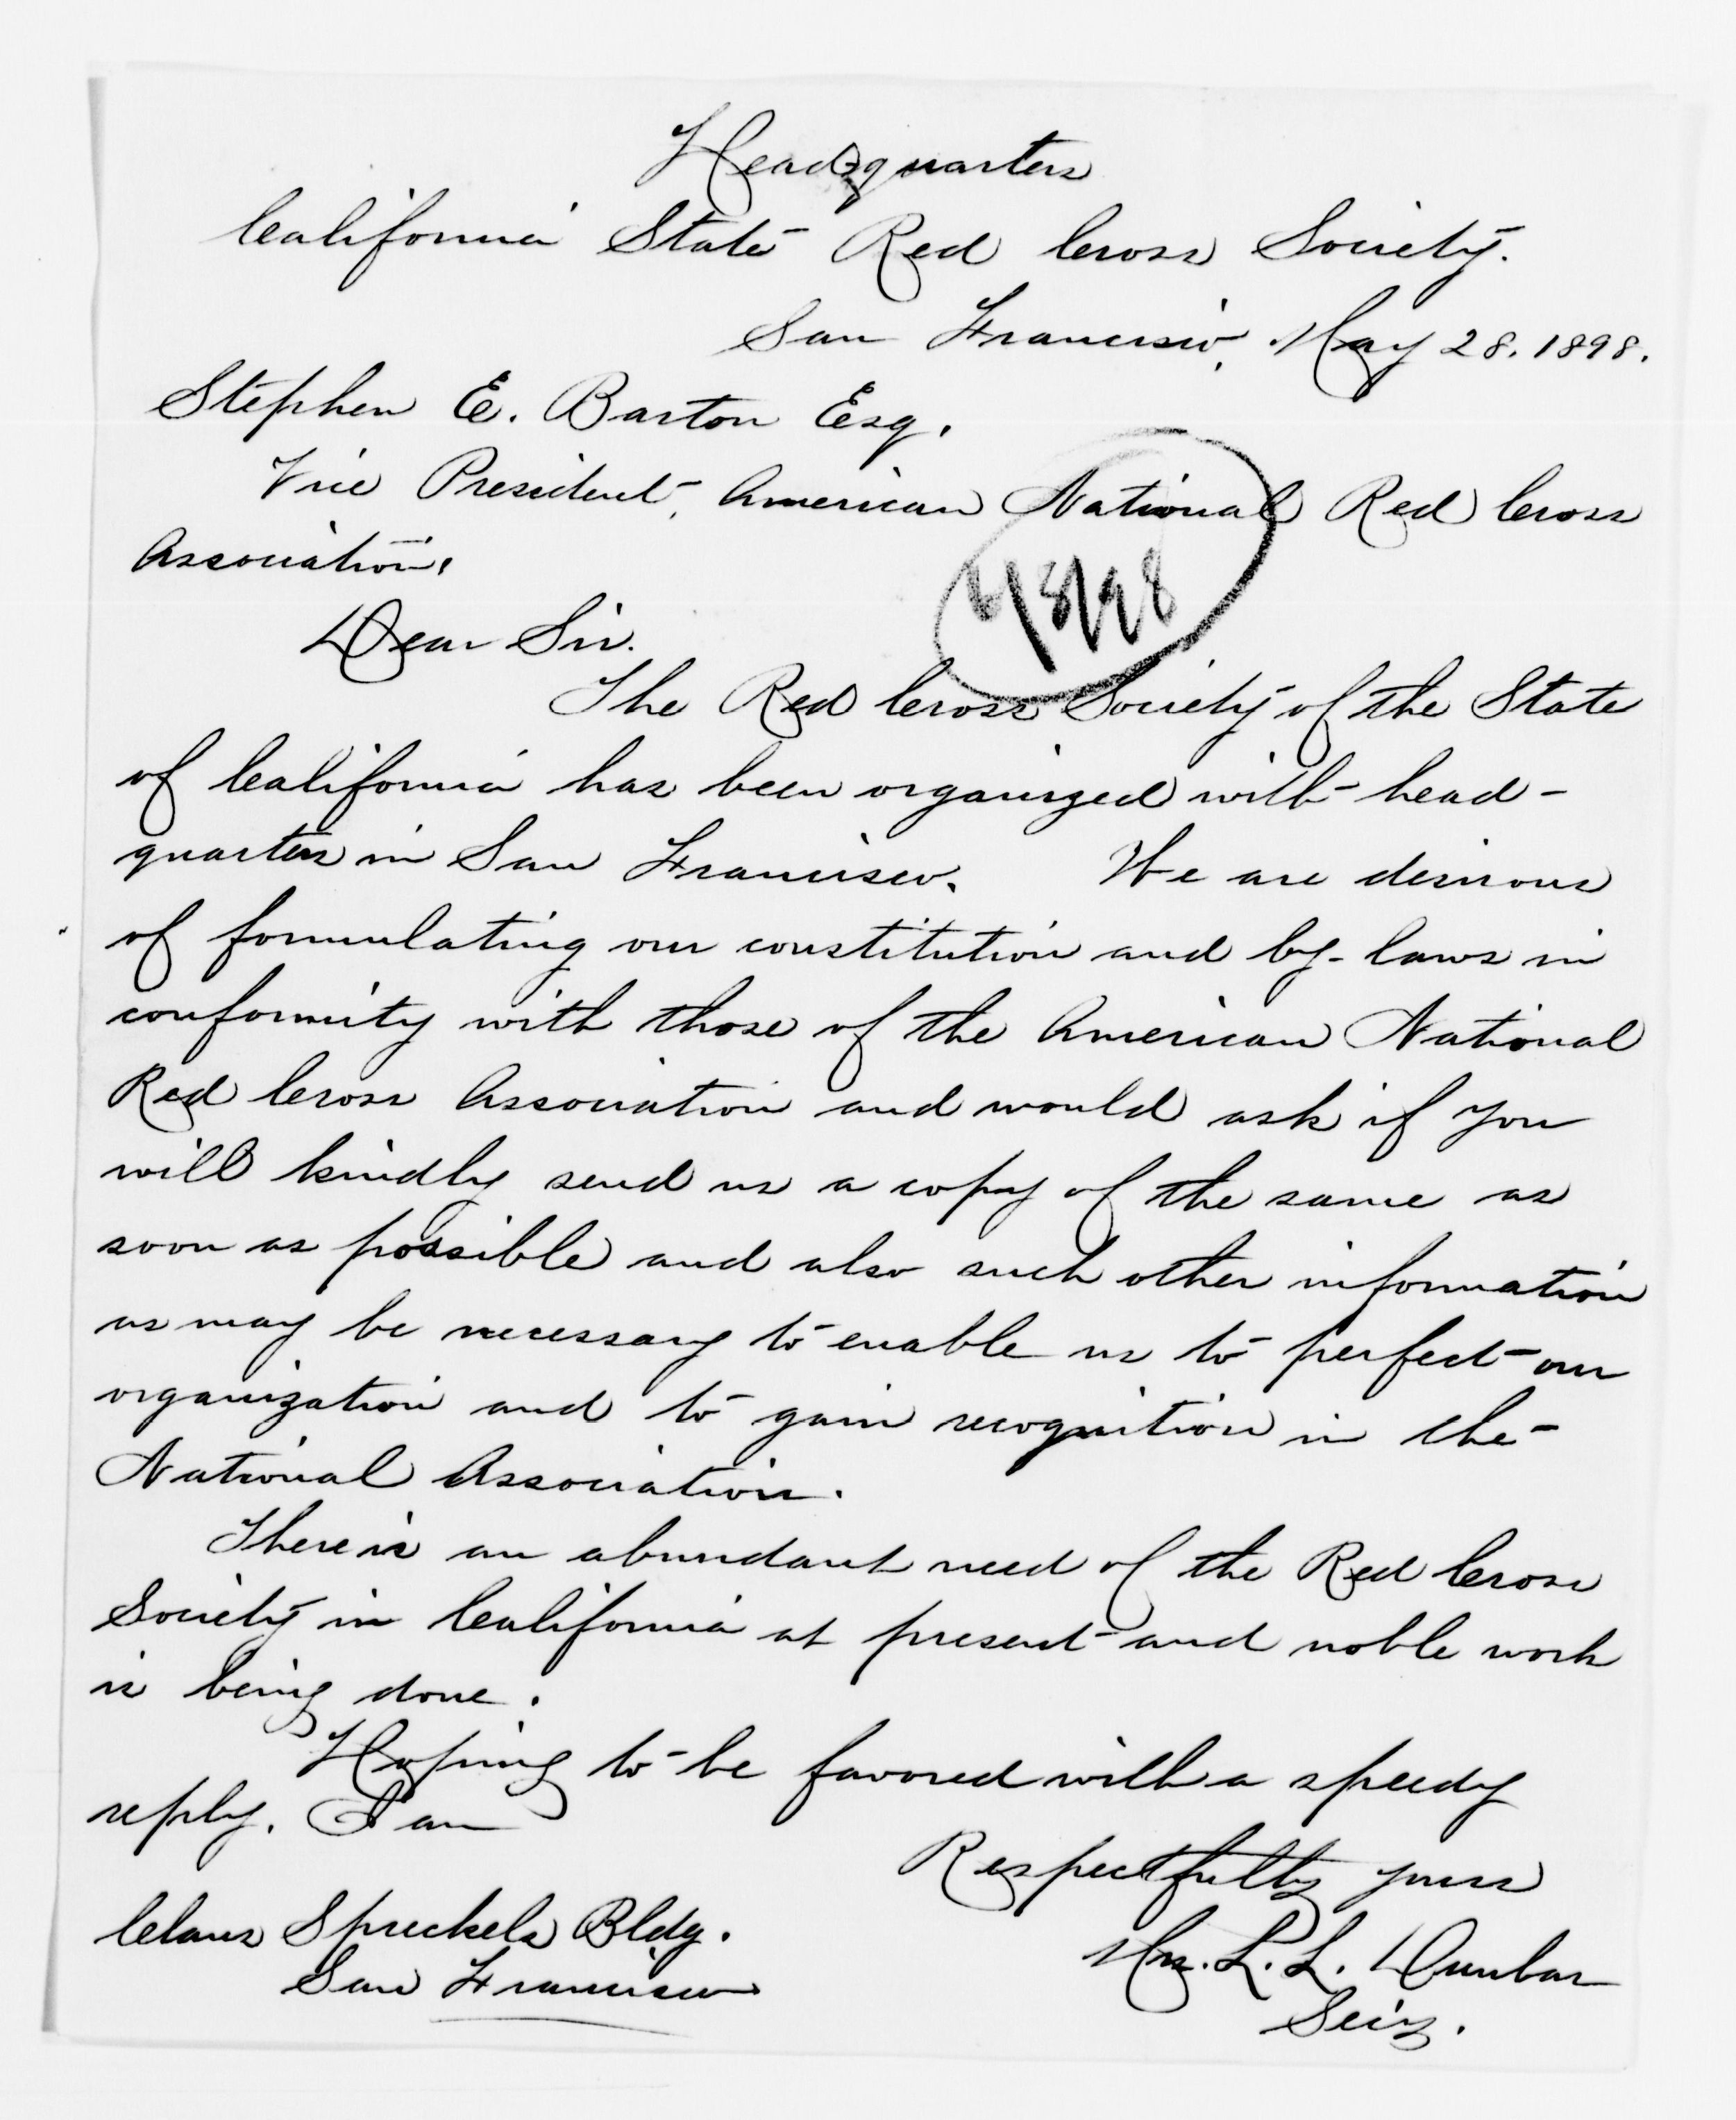 Headquarters
California State Red Cross Society.
San Francisco, May 28. 1898.
Stephen E. Barton Esq.
Vice President, American National Red Cross
Association.
Dear Sir.
The Red Cross Society of the State
of California has been organized with head-
quarters in San Francisco. We are desirous
of formulating our constitution and by-laws in
conformity with those of the American National
Red Cross Association and would ask if you
will kindly send us a copy of the same as
soon as possible and also such other information
as may be necessary to enable us to perfect our
organization and to gain recognition in the
National Association.
There is an abundant need of the Red Cross
Society in California at present and noble work
is being done.
Hoping to be favored with a speedy
reply. I am
Respectfully yours
Claus Spreckels Bldg.
San Francisco
Mrs. L. L. Dunbar
Secy.